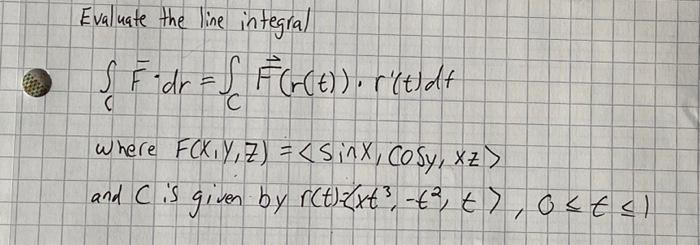 Evaluate the line integral
∫_C F̄ · dr = ∫_C F⃗(r(t)) · r'(t) dt
where F(x, y, z) = <sin x, cos y, xz>
and C is given by r(t)=<xt³, -t², t>, 0 ≤ t ≤ 1